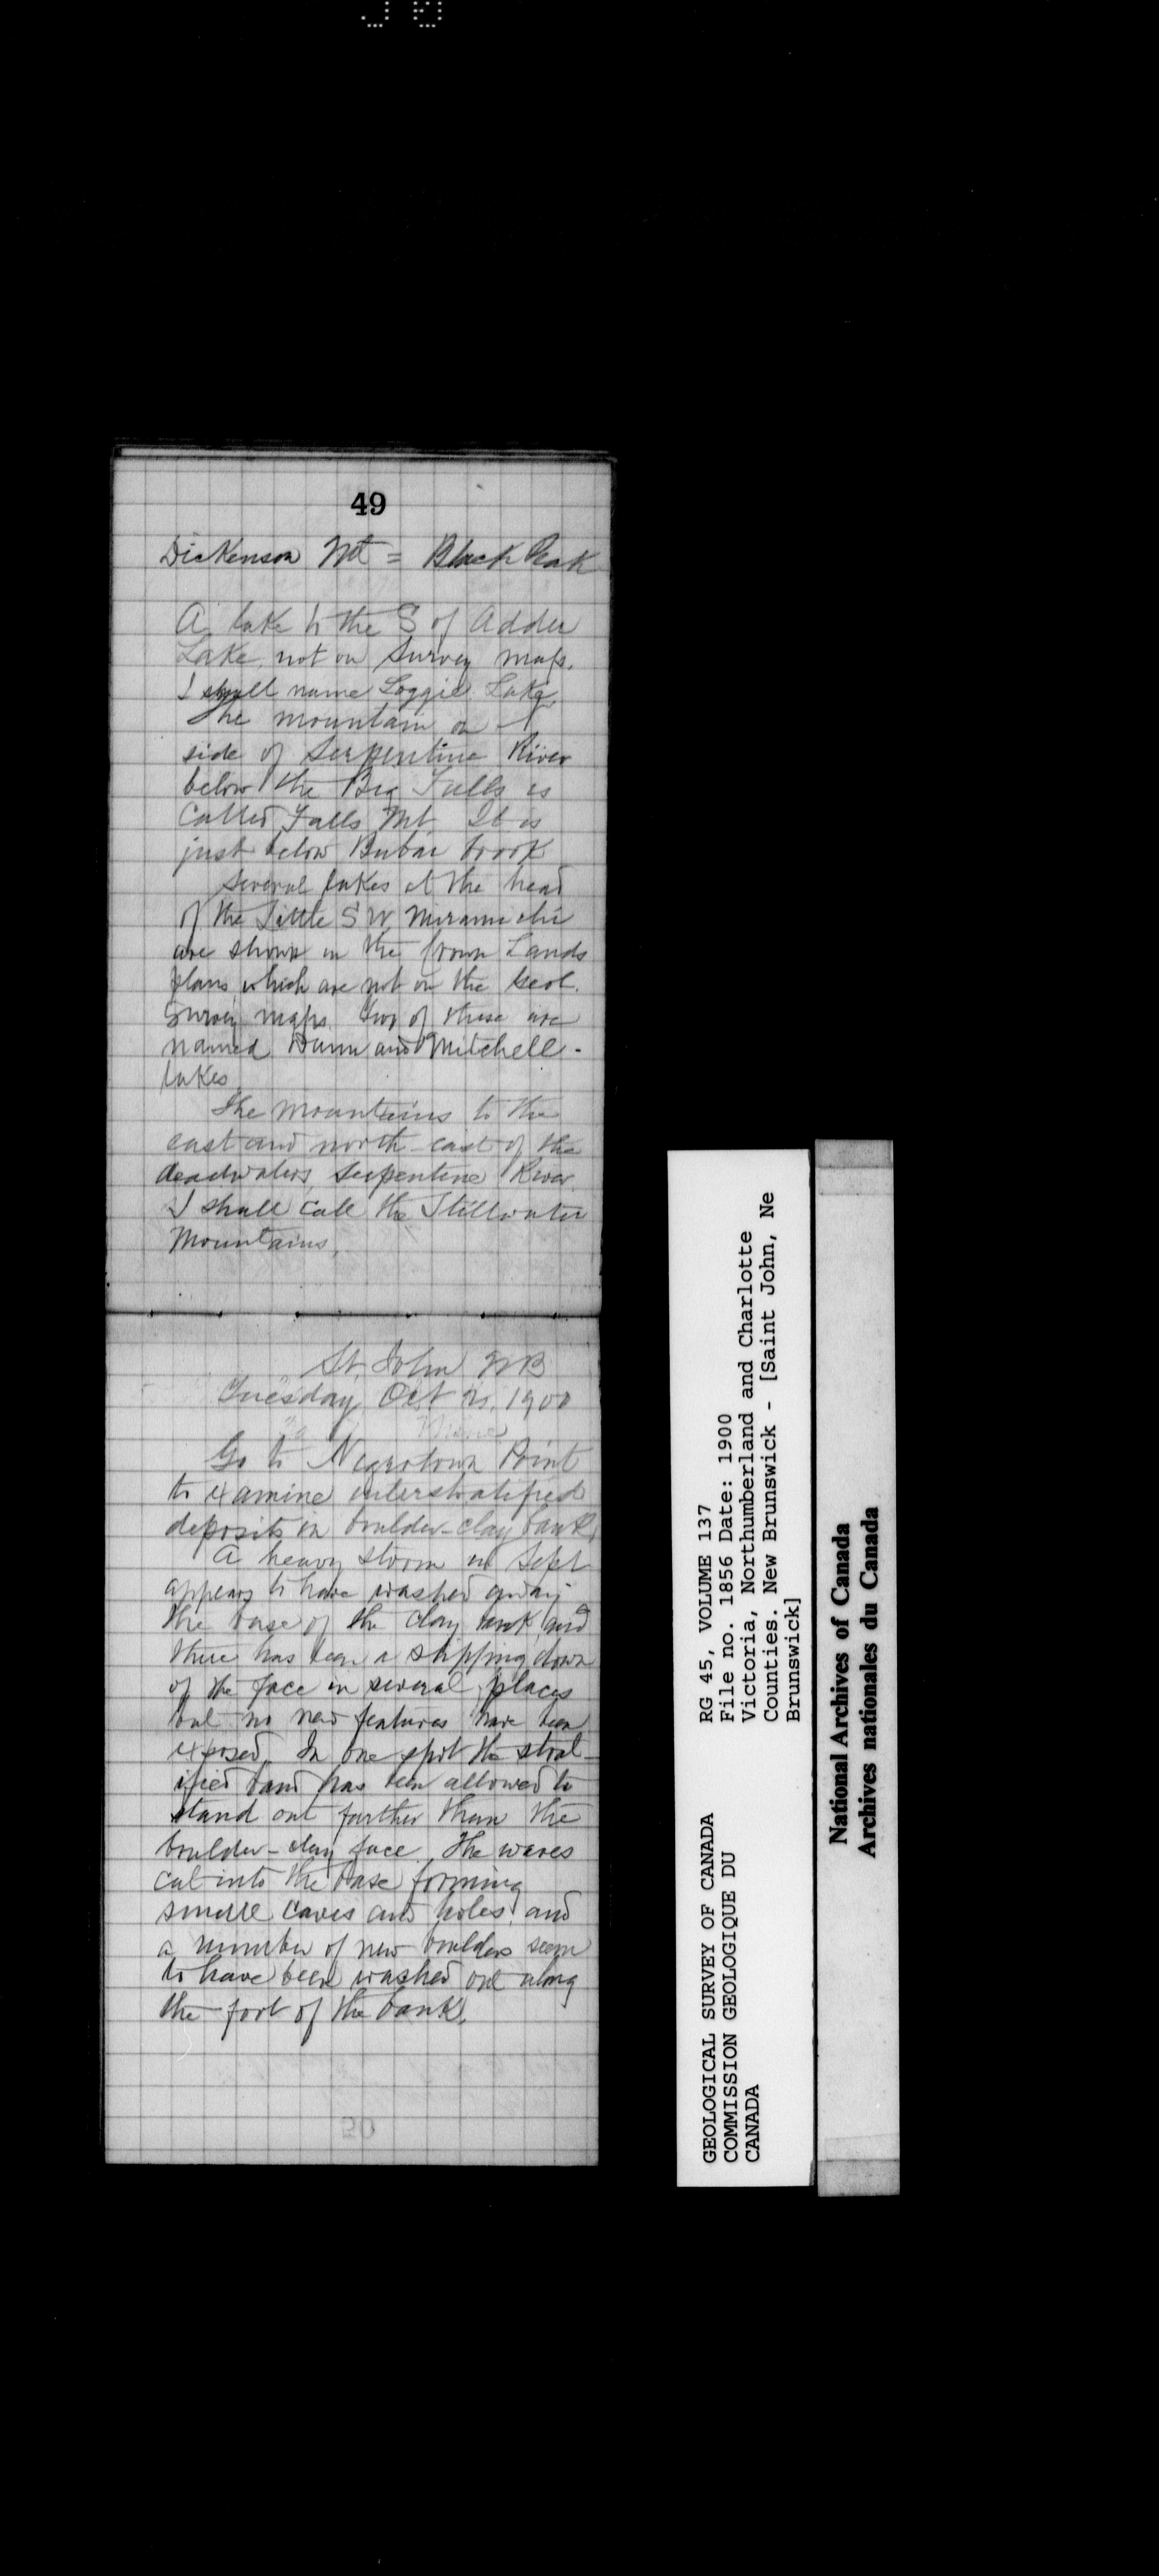 49
Dickenson Mt = Black Peak
A lake to the S of Adder
Lake, not on Survey maps.
I shall name Loggie Lake
The mountain on
side of Serpentine River
below the Big Falls is
called Falls Mt. It is
just below Bubar brook
Several lakes at the head
of the Little S W Miramichi
are shown in the Crown Lands
plans which are not on the Geol.
Survey maps. Two of these are
named Dunn and Mitchell
lakes.
The mountains to the
east and north-east of the
deadwaters, Serpentine River
I shall call the Stillwater
Mountains.
St. John NB
Tuesday Oct 1900
Go to Negrotown Point
to examine interstratified
deposits in boulder-clay bank.
A heavy storm in Sept
appears to have washed away
the base of the clay bank and
there has been a slipping down
of the face in several places
but no new features have been
exposed. In one spot the strat-
ified band has been allowed to
stand out further than the
boulder-clay face. The waves
cut into the base forming
small caves and holes, and
a number of new boulders seem
to have been washed out along
the foot of the bank.
GEOLOGICAL SURVEY OF CANADA
COMMISSION GEOLOGIQUE DU
CANADA
RG 45, VOLUME 137
File no. 1856 Date: 1900
Victoria, Northumberland and Charlotte
Counties. New Brunswick - [Saint John, Ne
Brunswick]
National Archives of Canada
Archives nationales du Canada